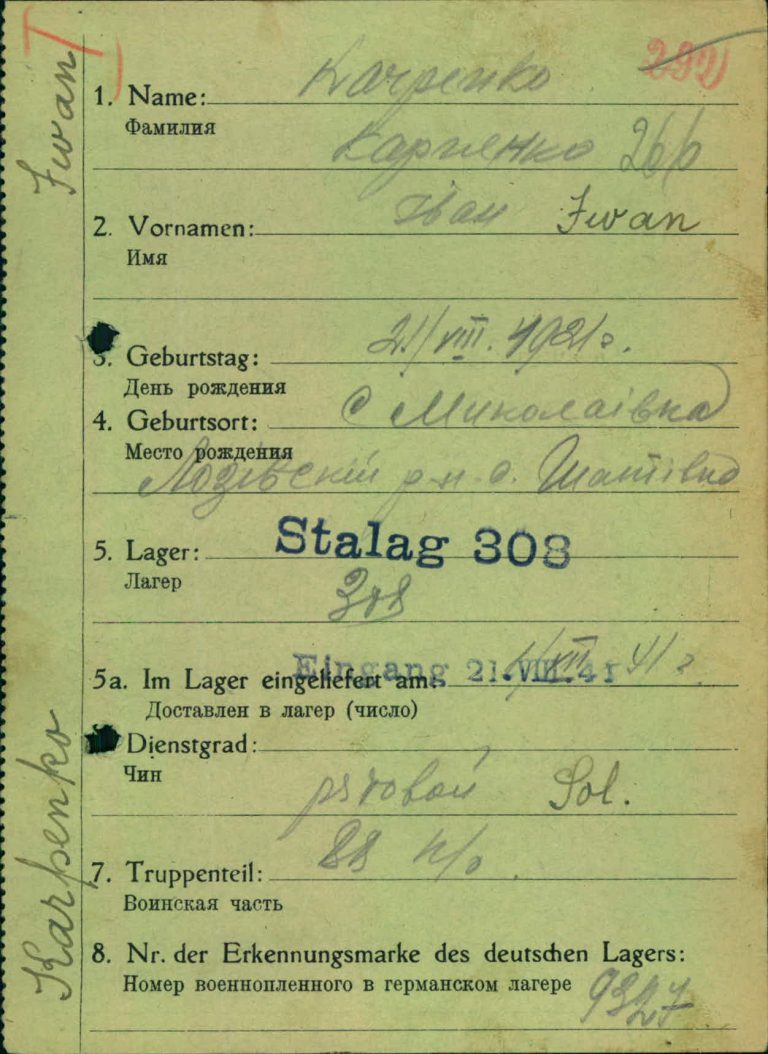 Iwan
292
1. Name: Karpenko
Фамилия
Карпенко 266
2. Vornamen: Іван Iwan
Имя
3. Geburtstag: 21/VIII. 1921 г.
День рождения
4. Geburtsort: С Миколаівка
Место рождения
Лозівский р-н. с. Шатівка
5. Lager: Stalag 308
Лагер
308
Eingang 21. VIII. 41
5a. Im Lager eingeliefert am: 41 г
Доставлен в лагер (число)
Dienstgrad:
Чин
рядовой Sol.
7. Truppenteil: 88
Воинская часть
Karpenko
8. Nr. der Erkennungsmarke des deutschen Lagers:
Номер военнопленного в германском лагере 9327